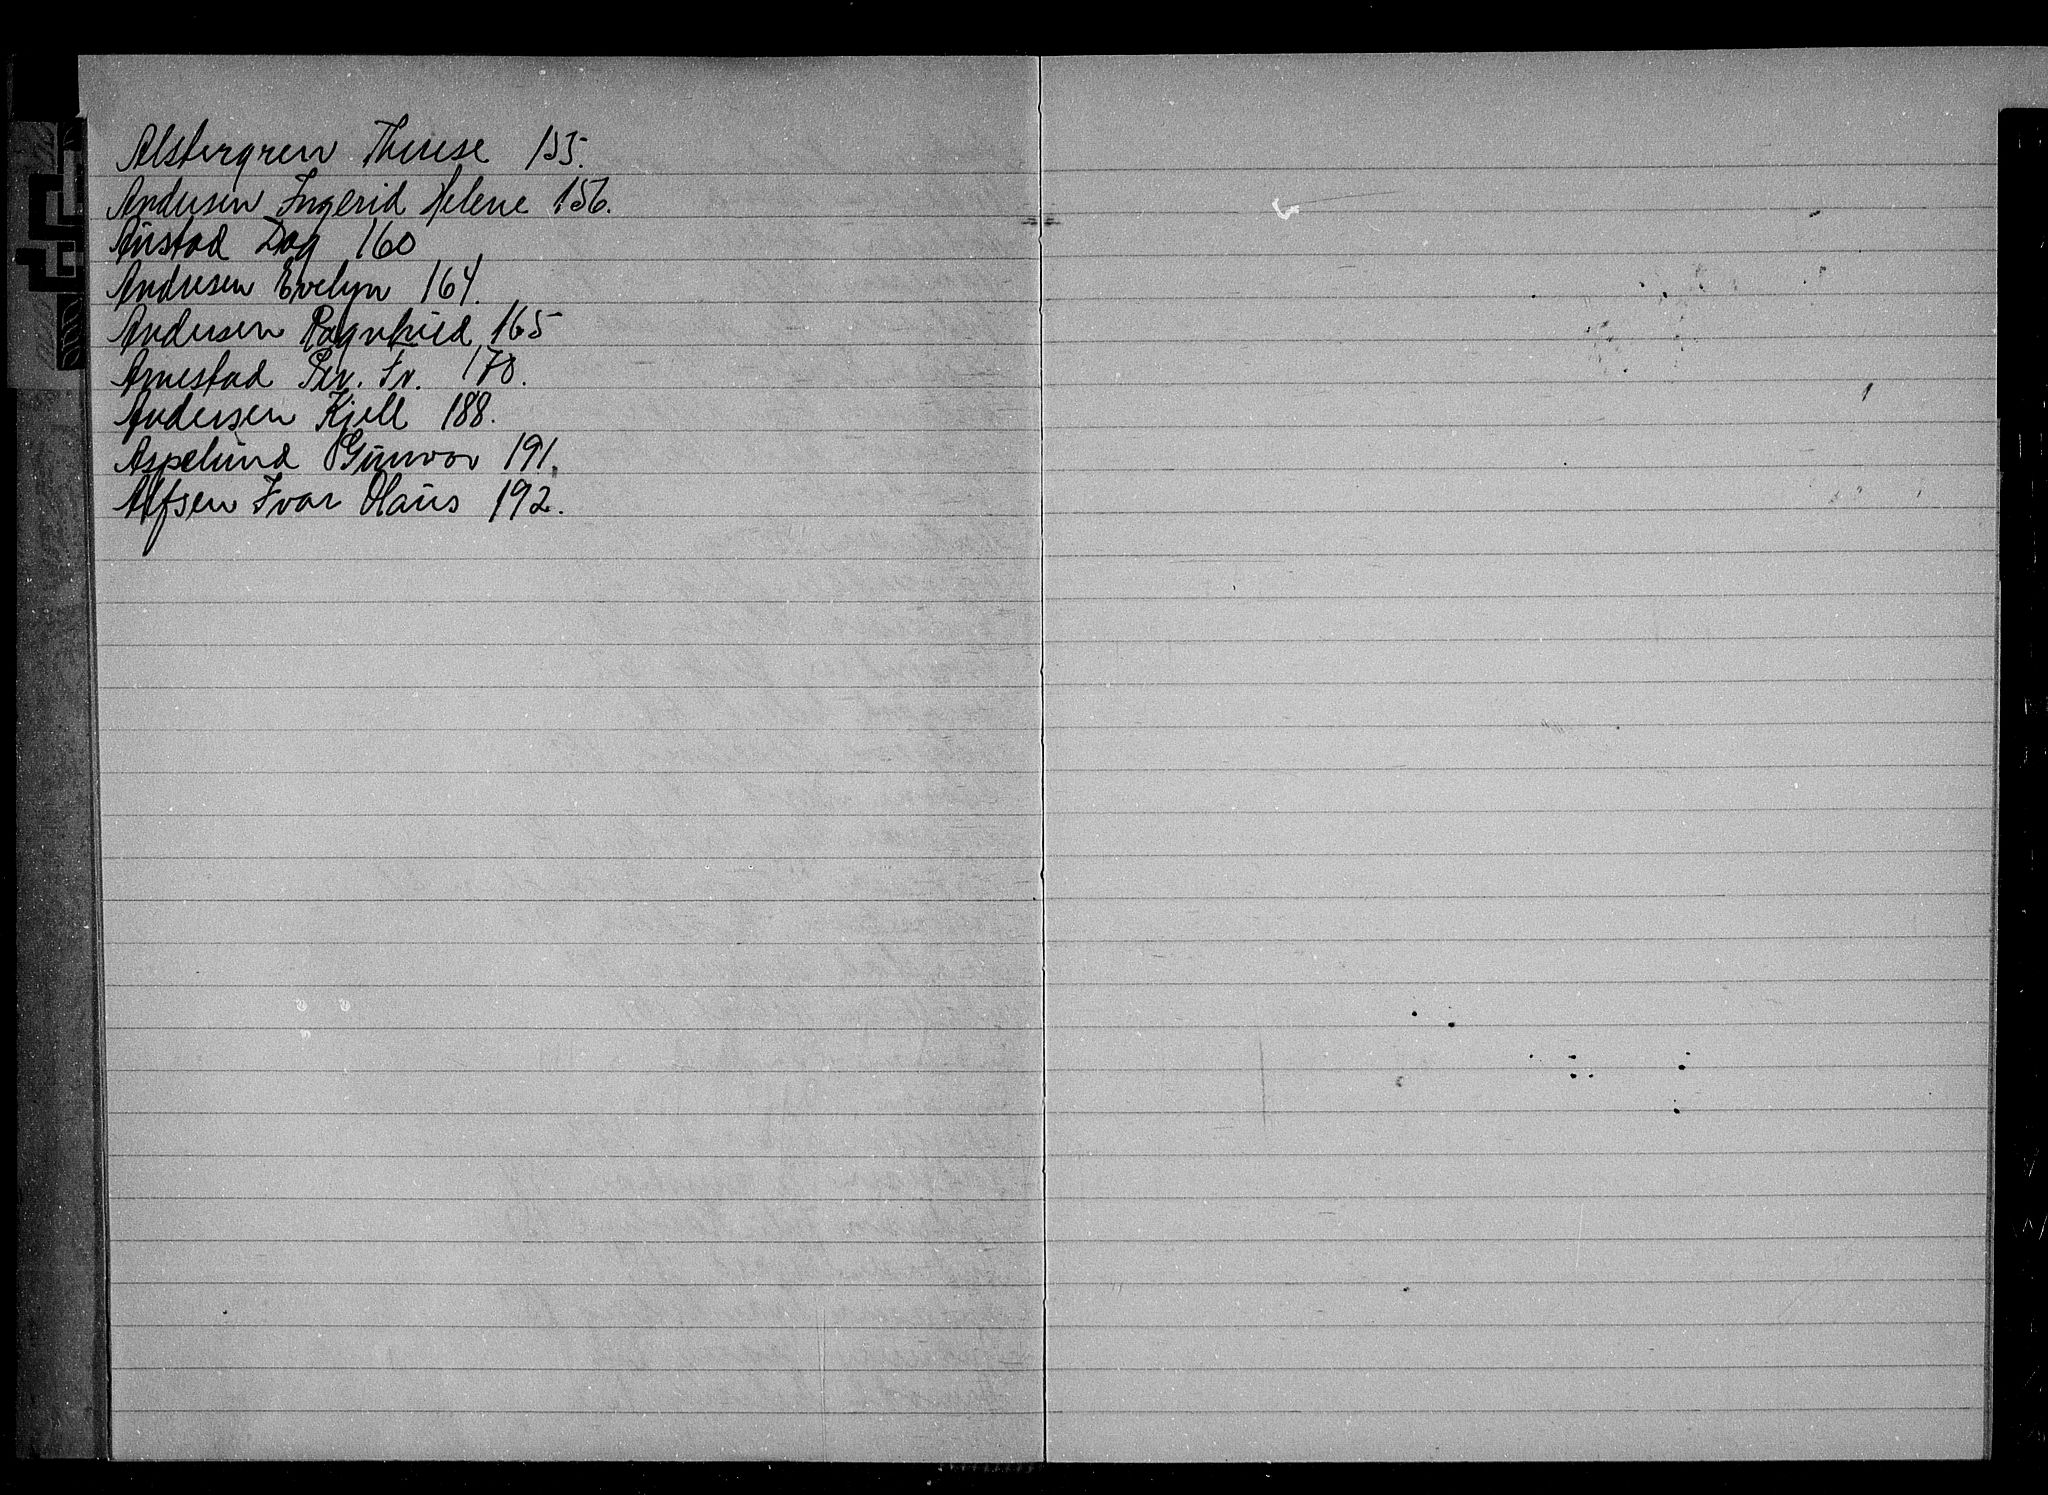 Alstergren Therese 155.
Andersen Ingerid Helene 156.
Austad Dag 160
Andresen Evelyn 164.
Andersen Ragnhild 165
Arnestad Per. Fr. 178.
Andersen Kjell 188.
Aspelund Gunvor 191.
Alfsen Ivar Olaus 192.